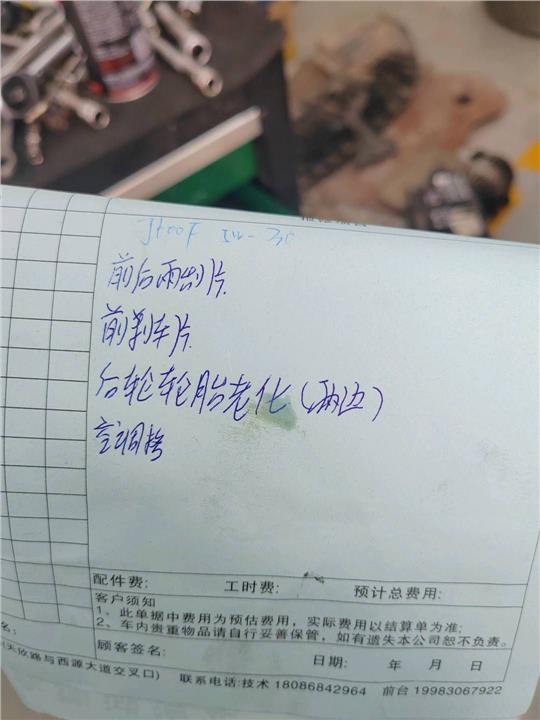 5W-30
前后雨刮片
前刹车片
后轮轮胎老化(两边)
空调格
配件费: 工时费: 预计总费用:
客户须知
1、此单据中费用为预估费用,实际费用以结算单为准;
2、车内贵重物品请自行妥善保管,如有遗失本公司恕不负责。
名:
顾客签名:
日期: 年 月 日
路与西源大道交叉口) 联系电话:技术 18086842964 前台 19983067922